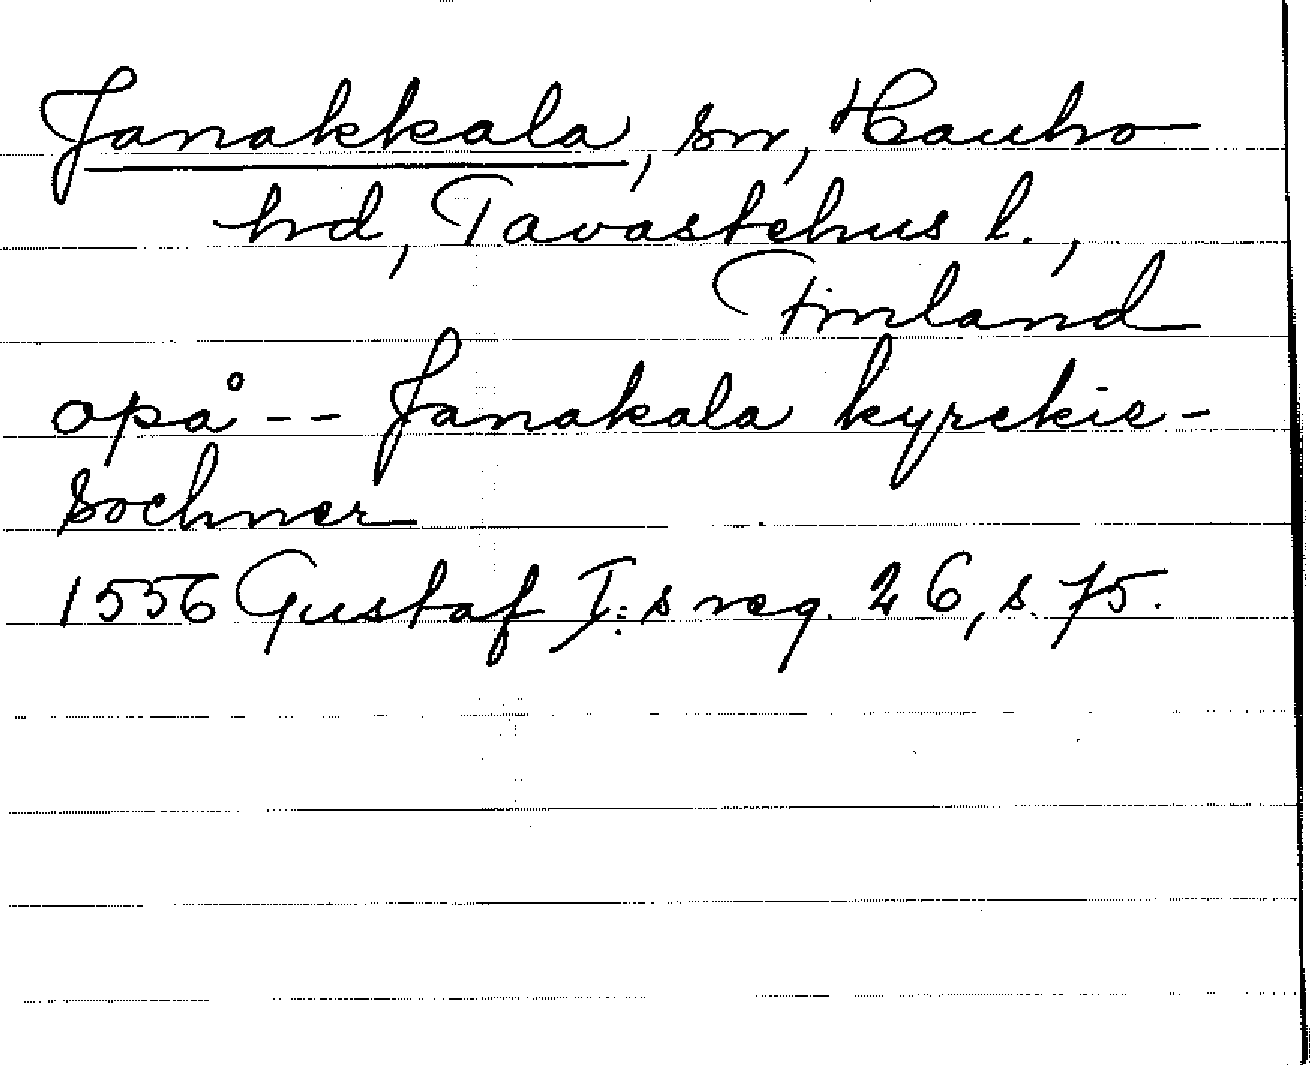 Janakkala, sn, Hauho
hd, Tavastehus l.,
Finland
opå -- Janakala kyrckie-
sochner
1556 Gustaf I:s reg. 26, s. 75.